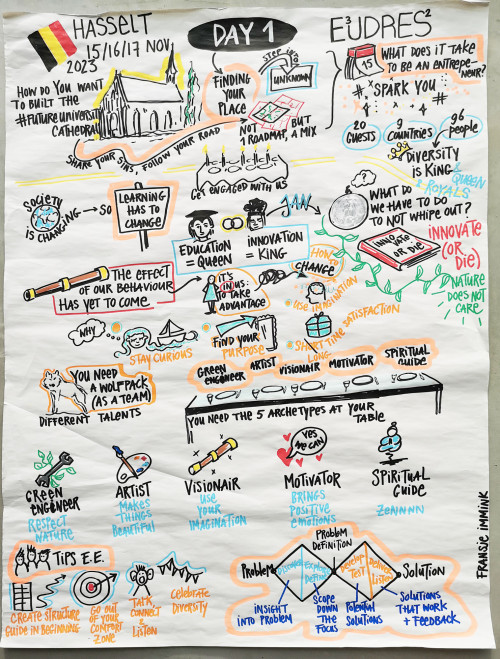 HASSELT
15/16/17 NOV
2023
DAY 1
E³UDRES²
HOW DO YOU WANT
TO BUILT THE
#FUTUREUNIVERSITY
CATHEDRAL
SHARE YOUR SINS, FOLLOW YOUR ROAD
FINDING
YOUR
PLACE
STEP INTO
UNKNOWN
NOT BUT
A ROADMAP, A MIX
15
WHAT DOES IT TAKE
TO BE AN ENTREPE-
NEUR?
#SPARK YOU
20
GUESTS
9
COUNTRIES
96
PEOPLE
DIVERSITY
IS KING &
QUEEN
& ROYALS
GET ENGAGED WITH US
SOCIETY
IS CHANGING → SO
LEARNING
HAS TO
CHANGE
EDUCATION
= QUEEN
INNOVATION
= KING
JAN
WHAT DO
WE HAVE TO DO
TO NOT WHIPE OUT?
INNOVATE
OR DIE
INNOVATE
(OR
DIE)
NATURE
DOES NOT
CARE
THE EFFECT
OF OUR BEHAVIOUR
HAS YET TO COME
IT'S
IN US:
TO TAKE
ADVANTAGE
HOW
CHANGE
USE IMAGINATION
WHY
STAY CURIOUS
FIND YOUR
PURPOSE
SHORT TIME SATISFACTION
LONG
YOU NEED
A WOLFPACK
(AS A TEAM)
DIFFERENT TALENTS
GREEN
ENGINEER
ARTIST
VISIONAIR
MOTIVATOR
SPIRITUAL
GUIDE
YOU NEED THE 5 ARCHETYPES AT YOUR
TABLE
GREEN
ENGINEER
RESPECT
NATURE
ARTIST
MAKES
THINGS
BEAUTIFUL
VISIONAIR
USE
YOUR
IMAGINATION
YES
WE CAN
MOTIVATOR
BRINGS
POSITIVE
EMOTIONS
SPIRITUAL
GUIDE
ZENNNN
FRANSJE IMMINK
TIPS E.E.
CREATE STRUCTURE
GUIDE IN BEGINNING
GO OUT
OF YOUR
COMFORT
ZONE
TALK,
CONNECT
& LISTEN
CELEBRATE
DIVERSITY
PROBLEM
DEFINITION
PROBLEM
SOLUTION
DEFINE
DEVELOP
TEST
DELIVER
LISTEN
INSIGHT
INTO PROBLEM
SCOPE
DOWN
THE
FOCUS
POTENTIAL
SOLUTIONS
SOLUTIONS
THAT WORK
+ FEEDBACK